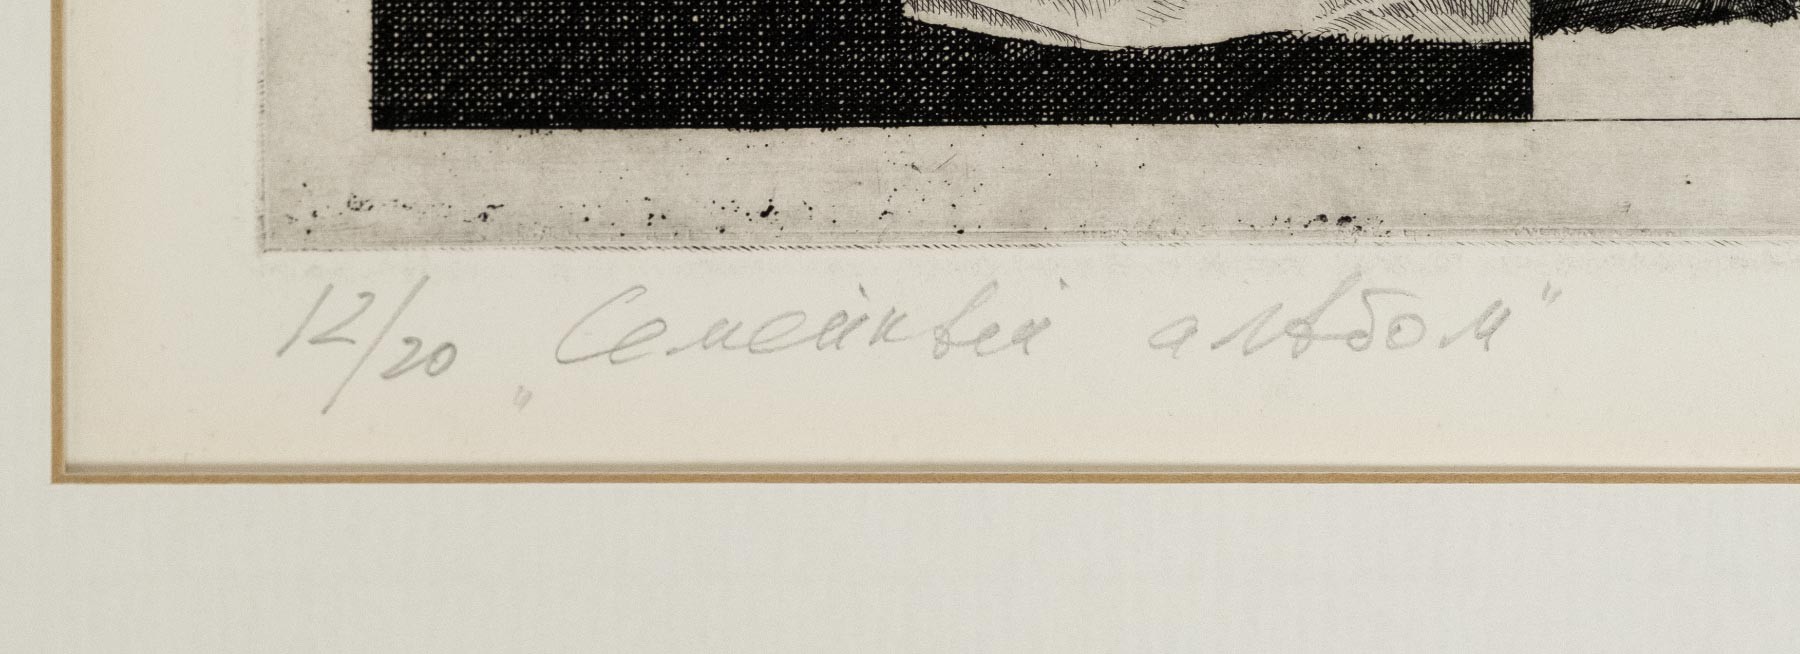 12/20 „Семейный альбом"